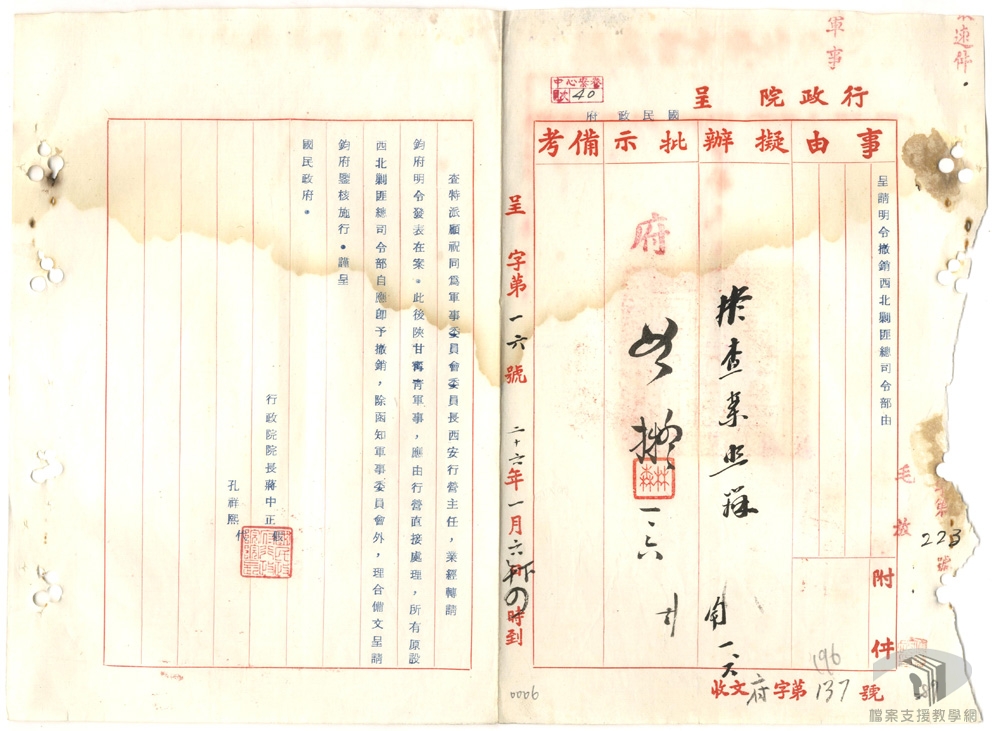 最速件
軍事
行政院 呈
國民政府
中心檔卷
號次 40
事由
擬辦
批示
備考
呈請明令撤銷西北剿匪總司令部由
附件
擬查案照辦
一、六
府
如擬
林森
一六
呈 字第一六號 二十六年一月六日下午 時到
收文府字第137號
196
223號
0006
查特派顧祝同為軍事委員會委員長西安行營主任，業經轉請
鈞府明令發表在案。此後陝甘寧青軍事，應由行營直接處理，所有原設
西北剿匪總司令部自應即予撤銷，除函知軍事委員會外，理合備文呈請
鈞府鑒核施行。謹呈
國民政府。
行政院院長蔣中正假
孔祥熙代
檔案支援教學網